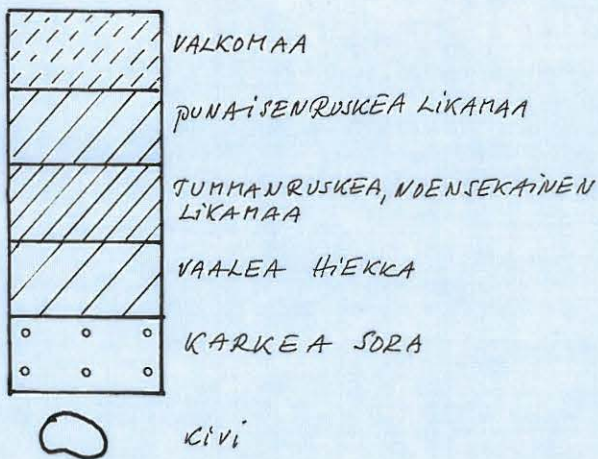 VALKOMAA
PUNAISENRUSKEA LIKAMAA
TUMMANRUSKEA, NOENSEKAINEN
LIKAMAA
VAALEA HIEKKA
KARKEA SORA
KIVI